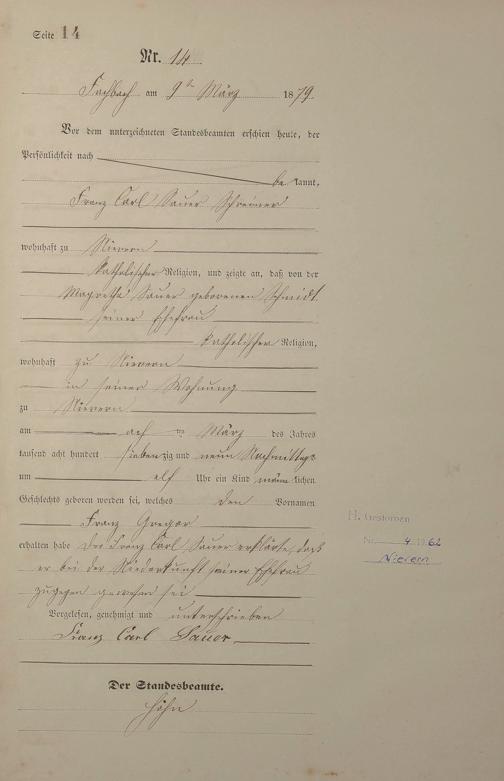 Seite 14
Nr. 14
Fachbach am 9ten März 1879
Vor dem unterzeichneten Standesbeamten erschien heute, der
Persönlichkeit nach
be kannt,
Franz Carl Sauer Schreiner
wohnhaft zu Nievern
katholischer Religion, und zeigte an, daß von der
Magretha Sauer geborenen Schmidt
seiner Ehefrau
katholischer Religion,
wohnhaft zu Nievern
in seiner Wohnung
zu Nievern
am März des Jahres
tausend acht hundert sieben zig und neun Nachmittags
um elf Uhr ein Kind männ lichen
Geschlechts geboren worden sei, welches den Vornamen
Franz Gregor
erhalten habe Der Franz Carl Sauer erklärte, dass
er bei der Niederkunft seiner Ehefrau
zugegen gewesen sei
Vorgelesen, genehmigt und unterschrieben
Franz Carl Sauer
Der Standesbeamte.
Höhn
Gestorben
Nr. 4 1962
Nievern